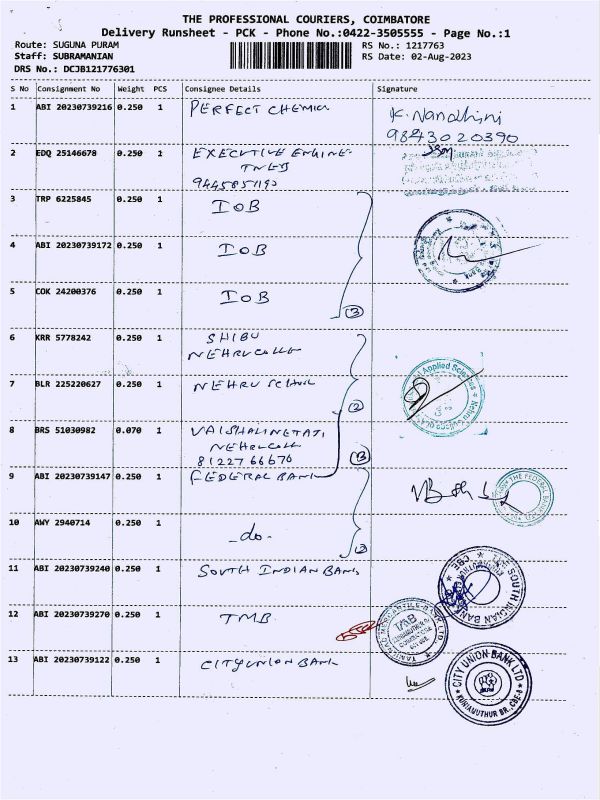 THE PROFESSIONAL COURIERS, COIMBATORE
Delivery Runsheet - PCK - Phone No.:0422-3505555 - Page No.:1
Route: SUGUNA PURAM
RS No.: 1217763
Staff: SUBRAMANIAN
RS Date: 02-Aug-2023
DRS No.: DCJB121776301
S No Consignment No Weight PCS Consignee Details Signature
1 ABI 20230739216 0.250 1 PERFECT CHEMICA K. Nandhini
9843020390
2 EDQ 25146678 0.250 1 EXECUTIVE ENGINE
TNEB
9445851190
3 TRP 6225845 0.250 1 IOB
4 ABI 20230739172 0.250 1 IOB
5 COK 24200376 0.250 1 IOB
3
6 KRR 5778242 0.250 1 SHIBU
NEHRU COLLE
7 BLR 225220627 0.250 1 NEHRU SCHOOL
Applied Sciences
2
8 BRS 51030982 0.070 1 VAISHALINETAJI
NEHRU COLL
81227 66670
13
9 ABI 20230739147 0.250 1 FEDERAL BANK
THE FEDERAL BANK
10 AWY 2940714 0.250 1 -do-
2
11 ABI 20230739240 0.250 1 SOUTH INDIAN BANK
THE SOUTH INDIAN BANK
CBE
12 ABI 20230739270 0.250 1 TMB
TAMILNAD MERCANTILE BANK LTD.
TMB
13 ABI 20230739122 0.250 1 CITY UNION BANK
CITY UNION BANK LTD
KUNIAMUTHUR BR., CBE-8